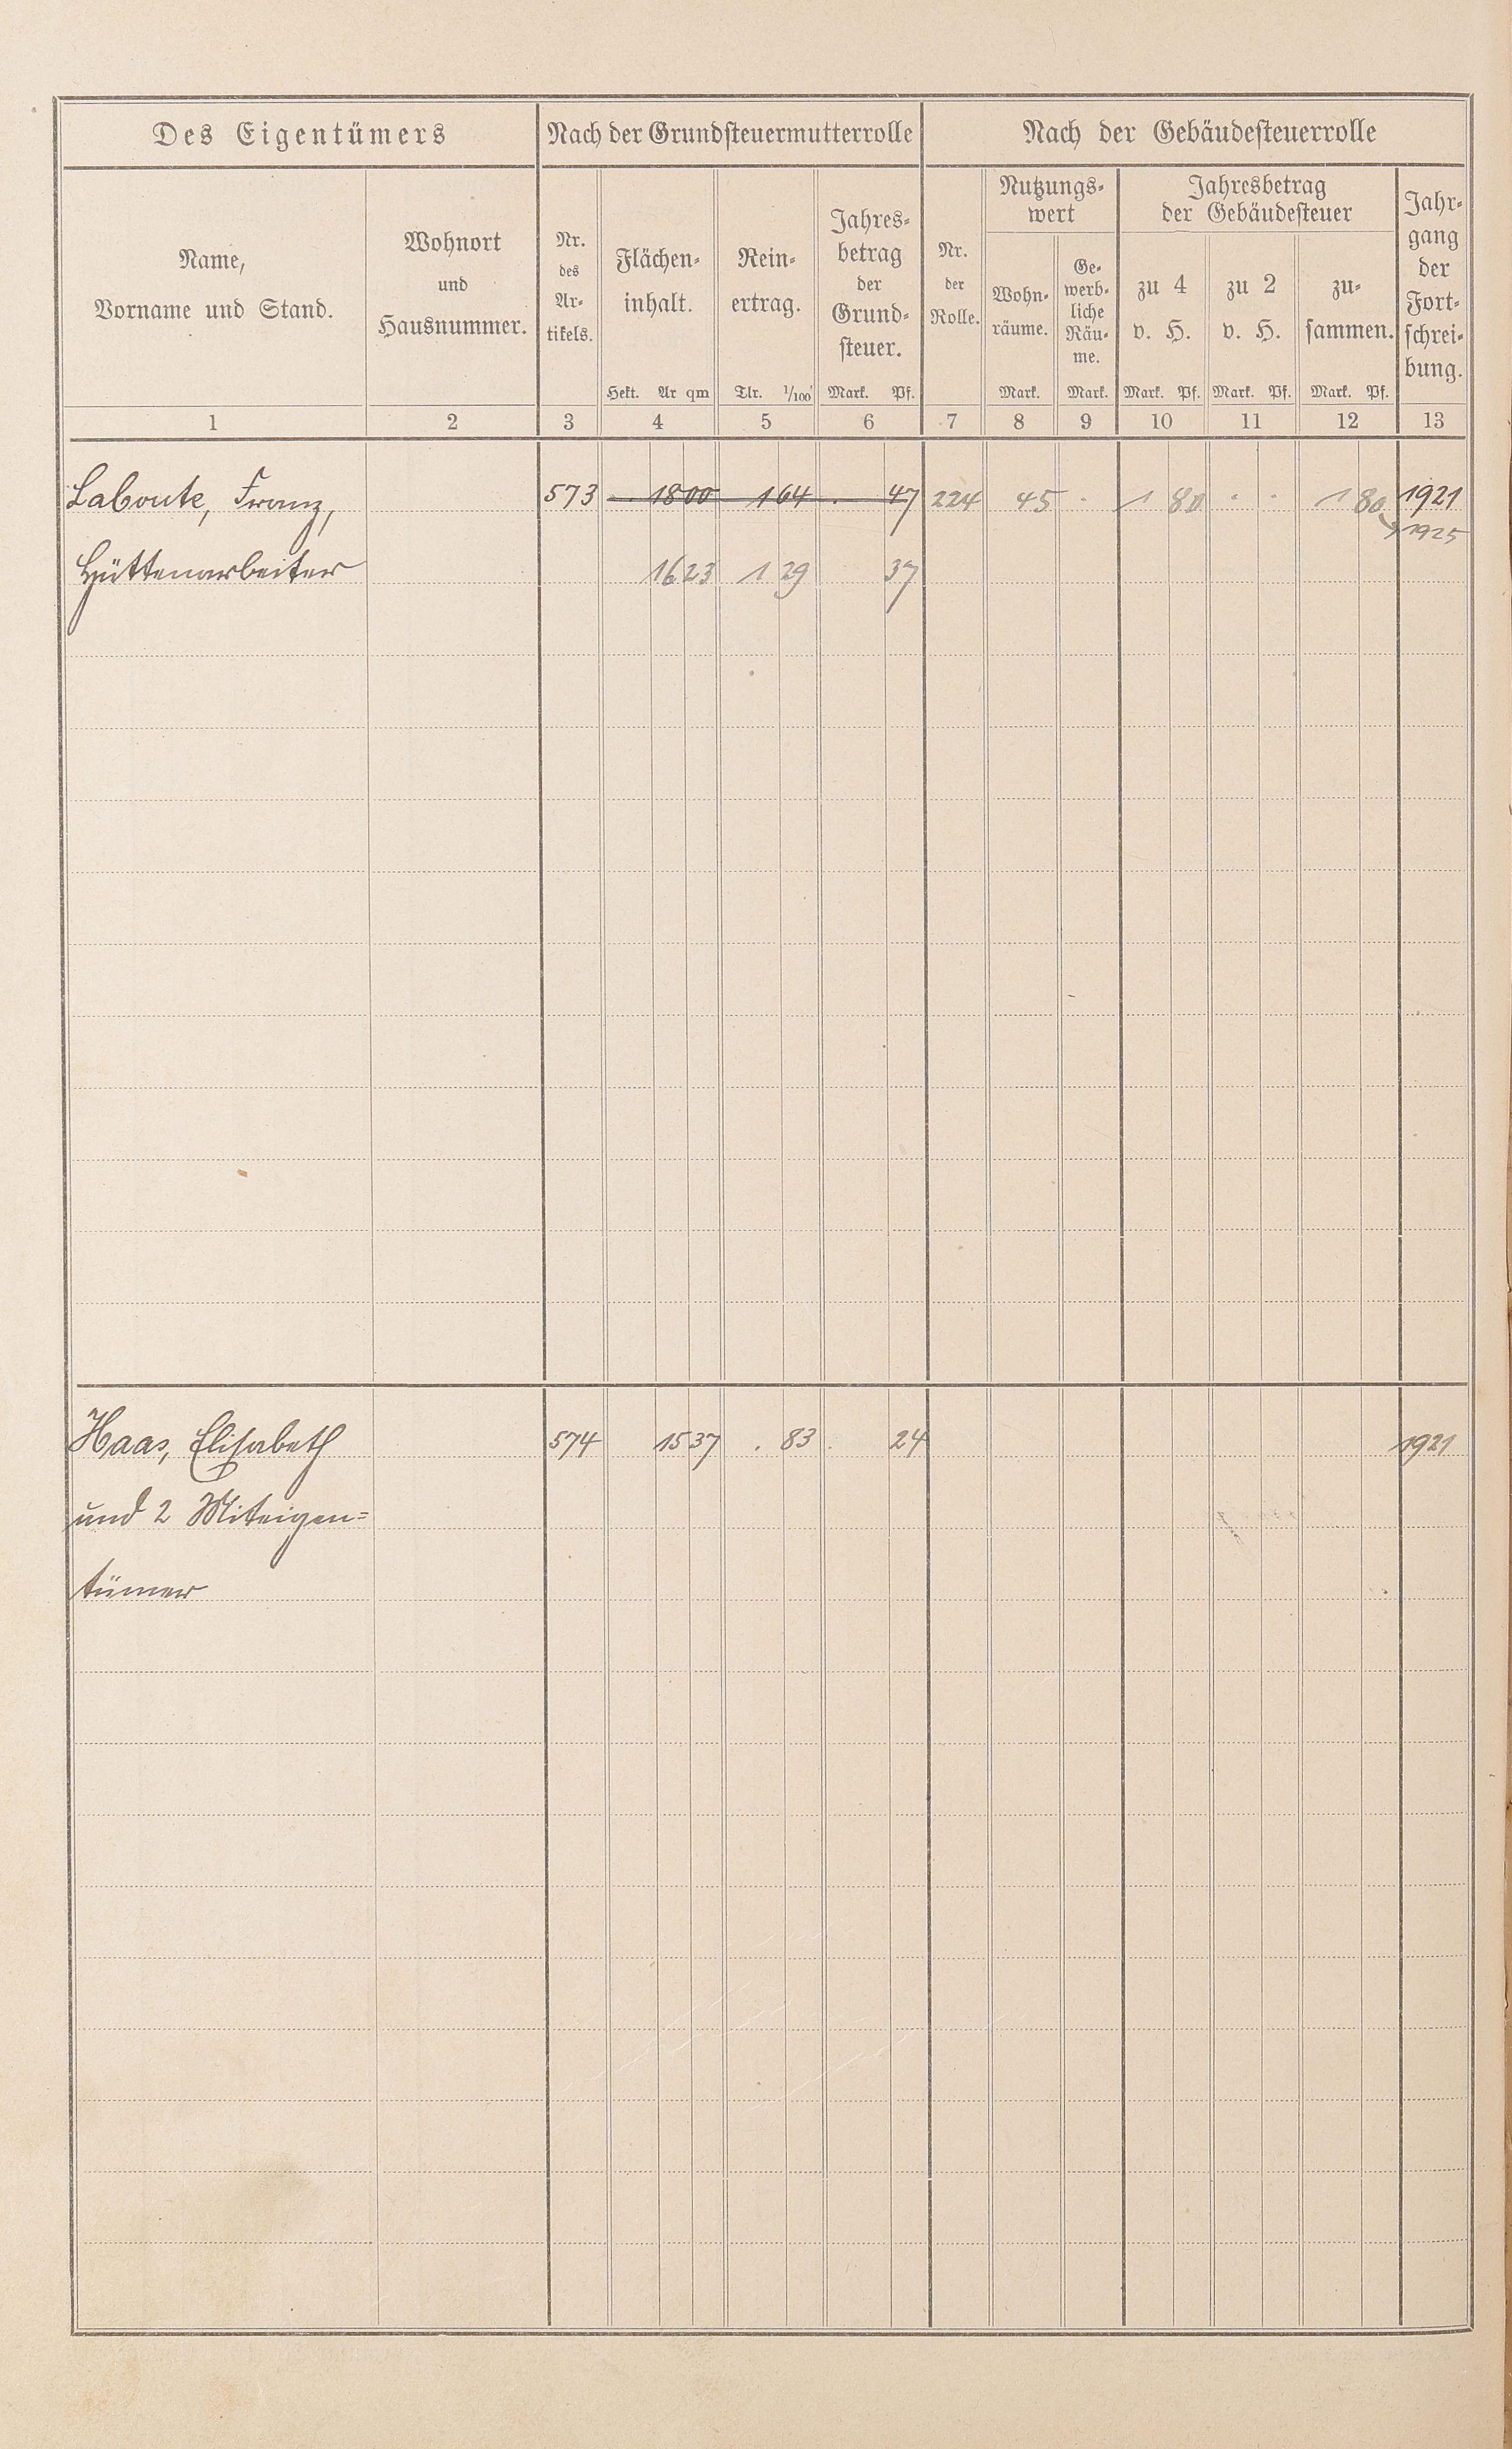 Des Eigentümers Nach der Grundsteuermutterrolle Nach der Gebäudesteuerrolle
Name,
Vorname und Stand.
Wohnort
und
Hausnummer.
Nr.
des
Ar-
tikels.
Flächen-
inhalt.
Hekt. Ar qm
Rein-
ertrag.
Tlr. 1/100
Jahres-
betrag
der
Grund-
steuer.
Mark. Pf.
Nr.
der
Rolle.
Nutzungs-
wert
Wohn-
räume.
Mark.
Ge-
werb-
liche
Räu-
me.
Mark.
Jahresbetrag
der Gebäudesteuer
zu 4
v. H.
Mark. Pf.
zu 2
v. H.
Mark. Pf.
zu-
sammen.
Mark. Pf.
Jahr-
gang
der
Fort-
schrei-
bung.
1 2 3 4 5 6 7 8 9 10 11 12 13
Laboute, Franz, 573 . 18 00 1 64 . 47 224 45 . 1 80 . . 1 80 1921
1925
Hüttenarbeiter 16 23 1 29 37
Haas, Elisabeth 574 15 37 . 83 . 24 1921
und 2 Miteigen=
tümer